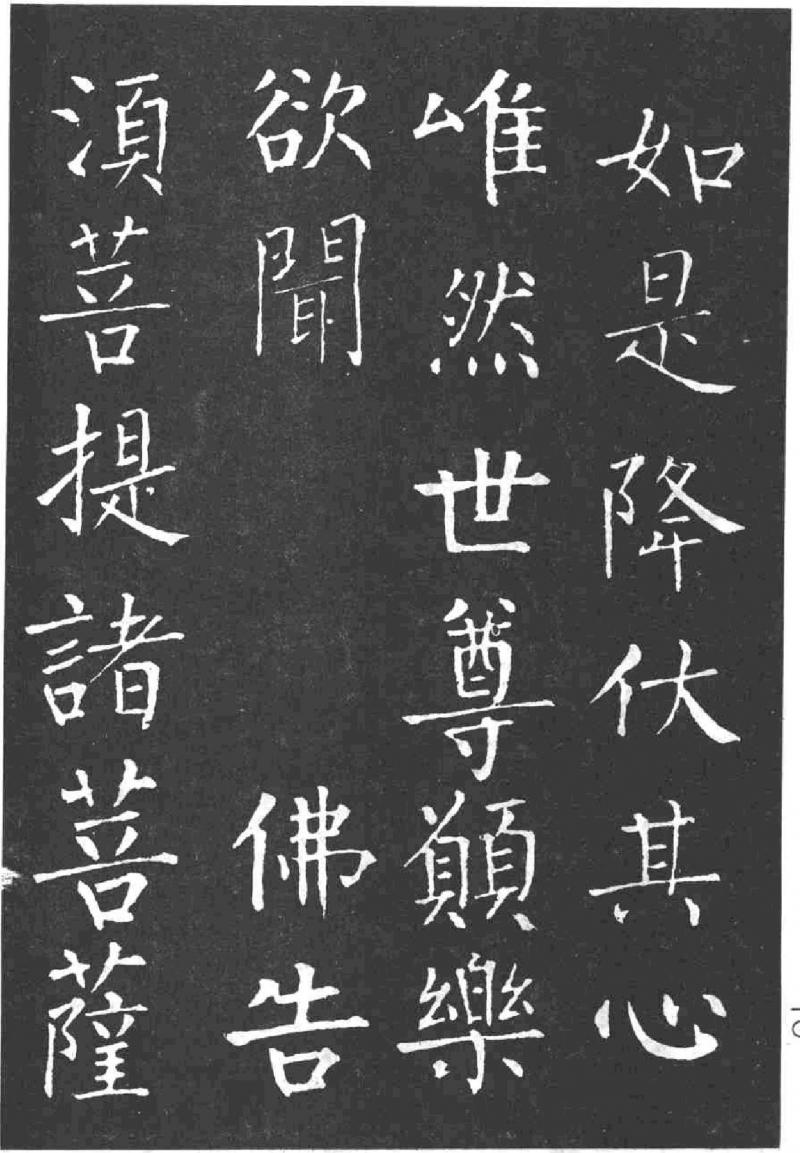 如是降伏其心
唯然世尊願樂
欲聞 佛告
須菩提諸菩薩